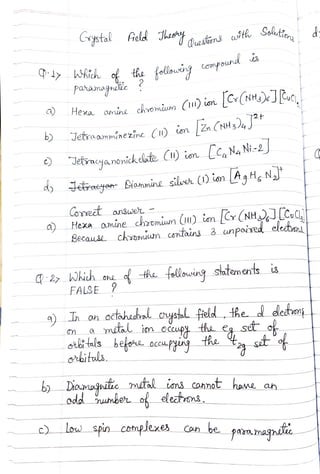 Crystal Field Theory Questions with Solutions
Q.1> Which of the following compound is
paramagnetic ?
a) Hexa amine chromium (III) ion [Cr(NH3)6][CuCl
b) Tetraamminezinc (II) ion [Zn(NH3)4]2+
c) Tetracyanonickelate (II) ion [C4N4Ni-2]
d) Diammine silver (I) ion [AgH6N2]+
Correct answer -
a) Hexa amine chromium (III) ion [Cr(NH3)6][CuCl
Because chromium contains 3 unpaired electrons
Q.2> Which one of the following statements is
FALSE ?
a) In an octahedral crystal field, the d electrons
on a metal ion occupy the eg set of
orbitals before occupying the t2g set of
orbitals.
b) Diamagnetic metal ions cannot have an
odd number of electrons.
c) Low spin complexes can be paramagnetic